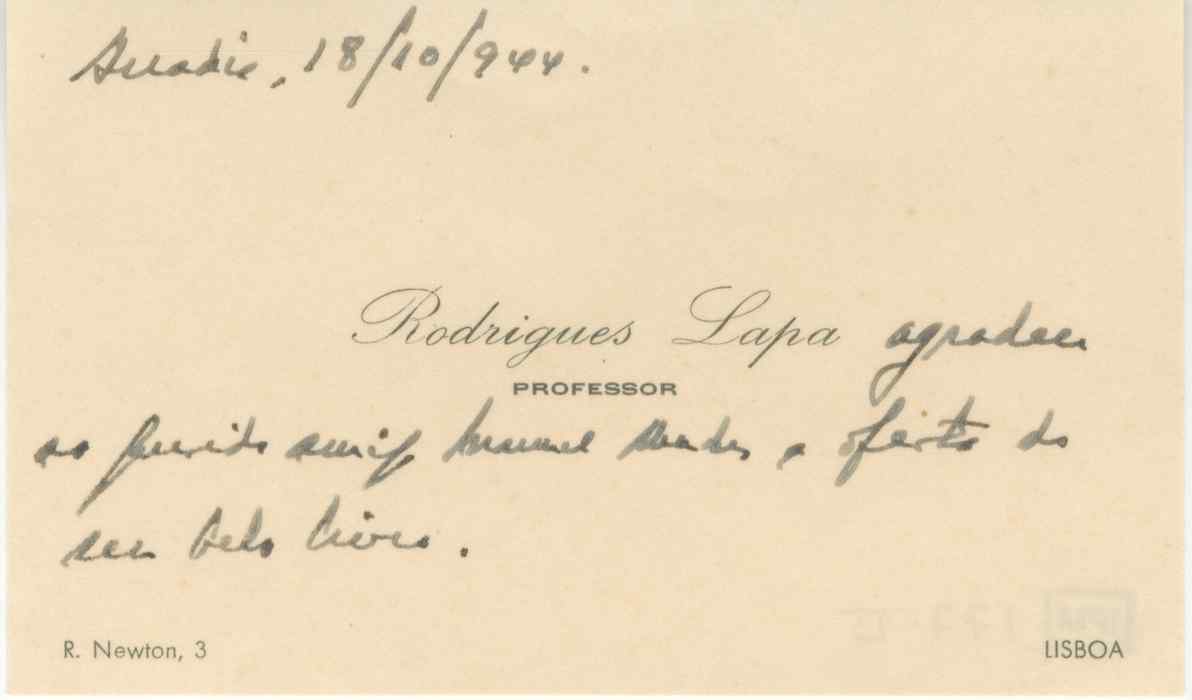 Anadia, 18/10/944.
Rodrigues Lapa agradece
PROFESSOR
ao querido amigo Manuel Mendes a oferta do
seu belo livro.
R. Newton, 3
LISBOA